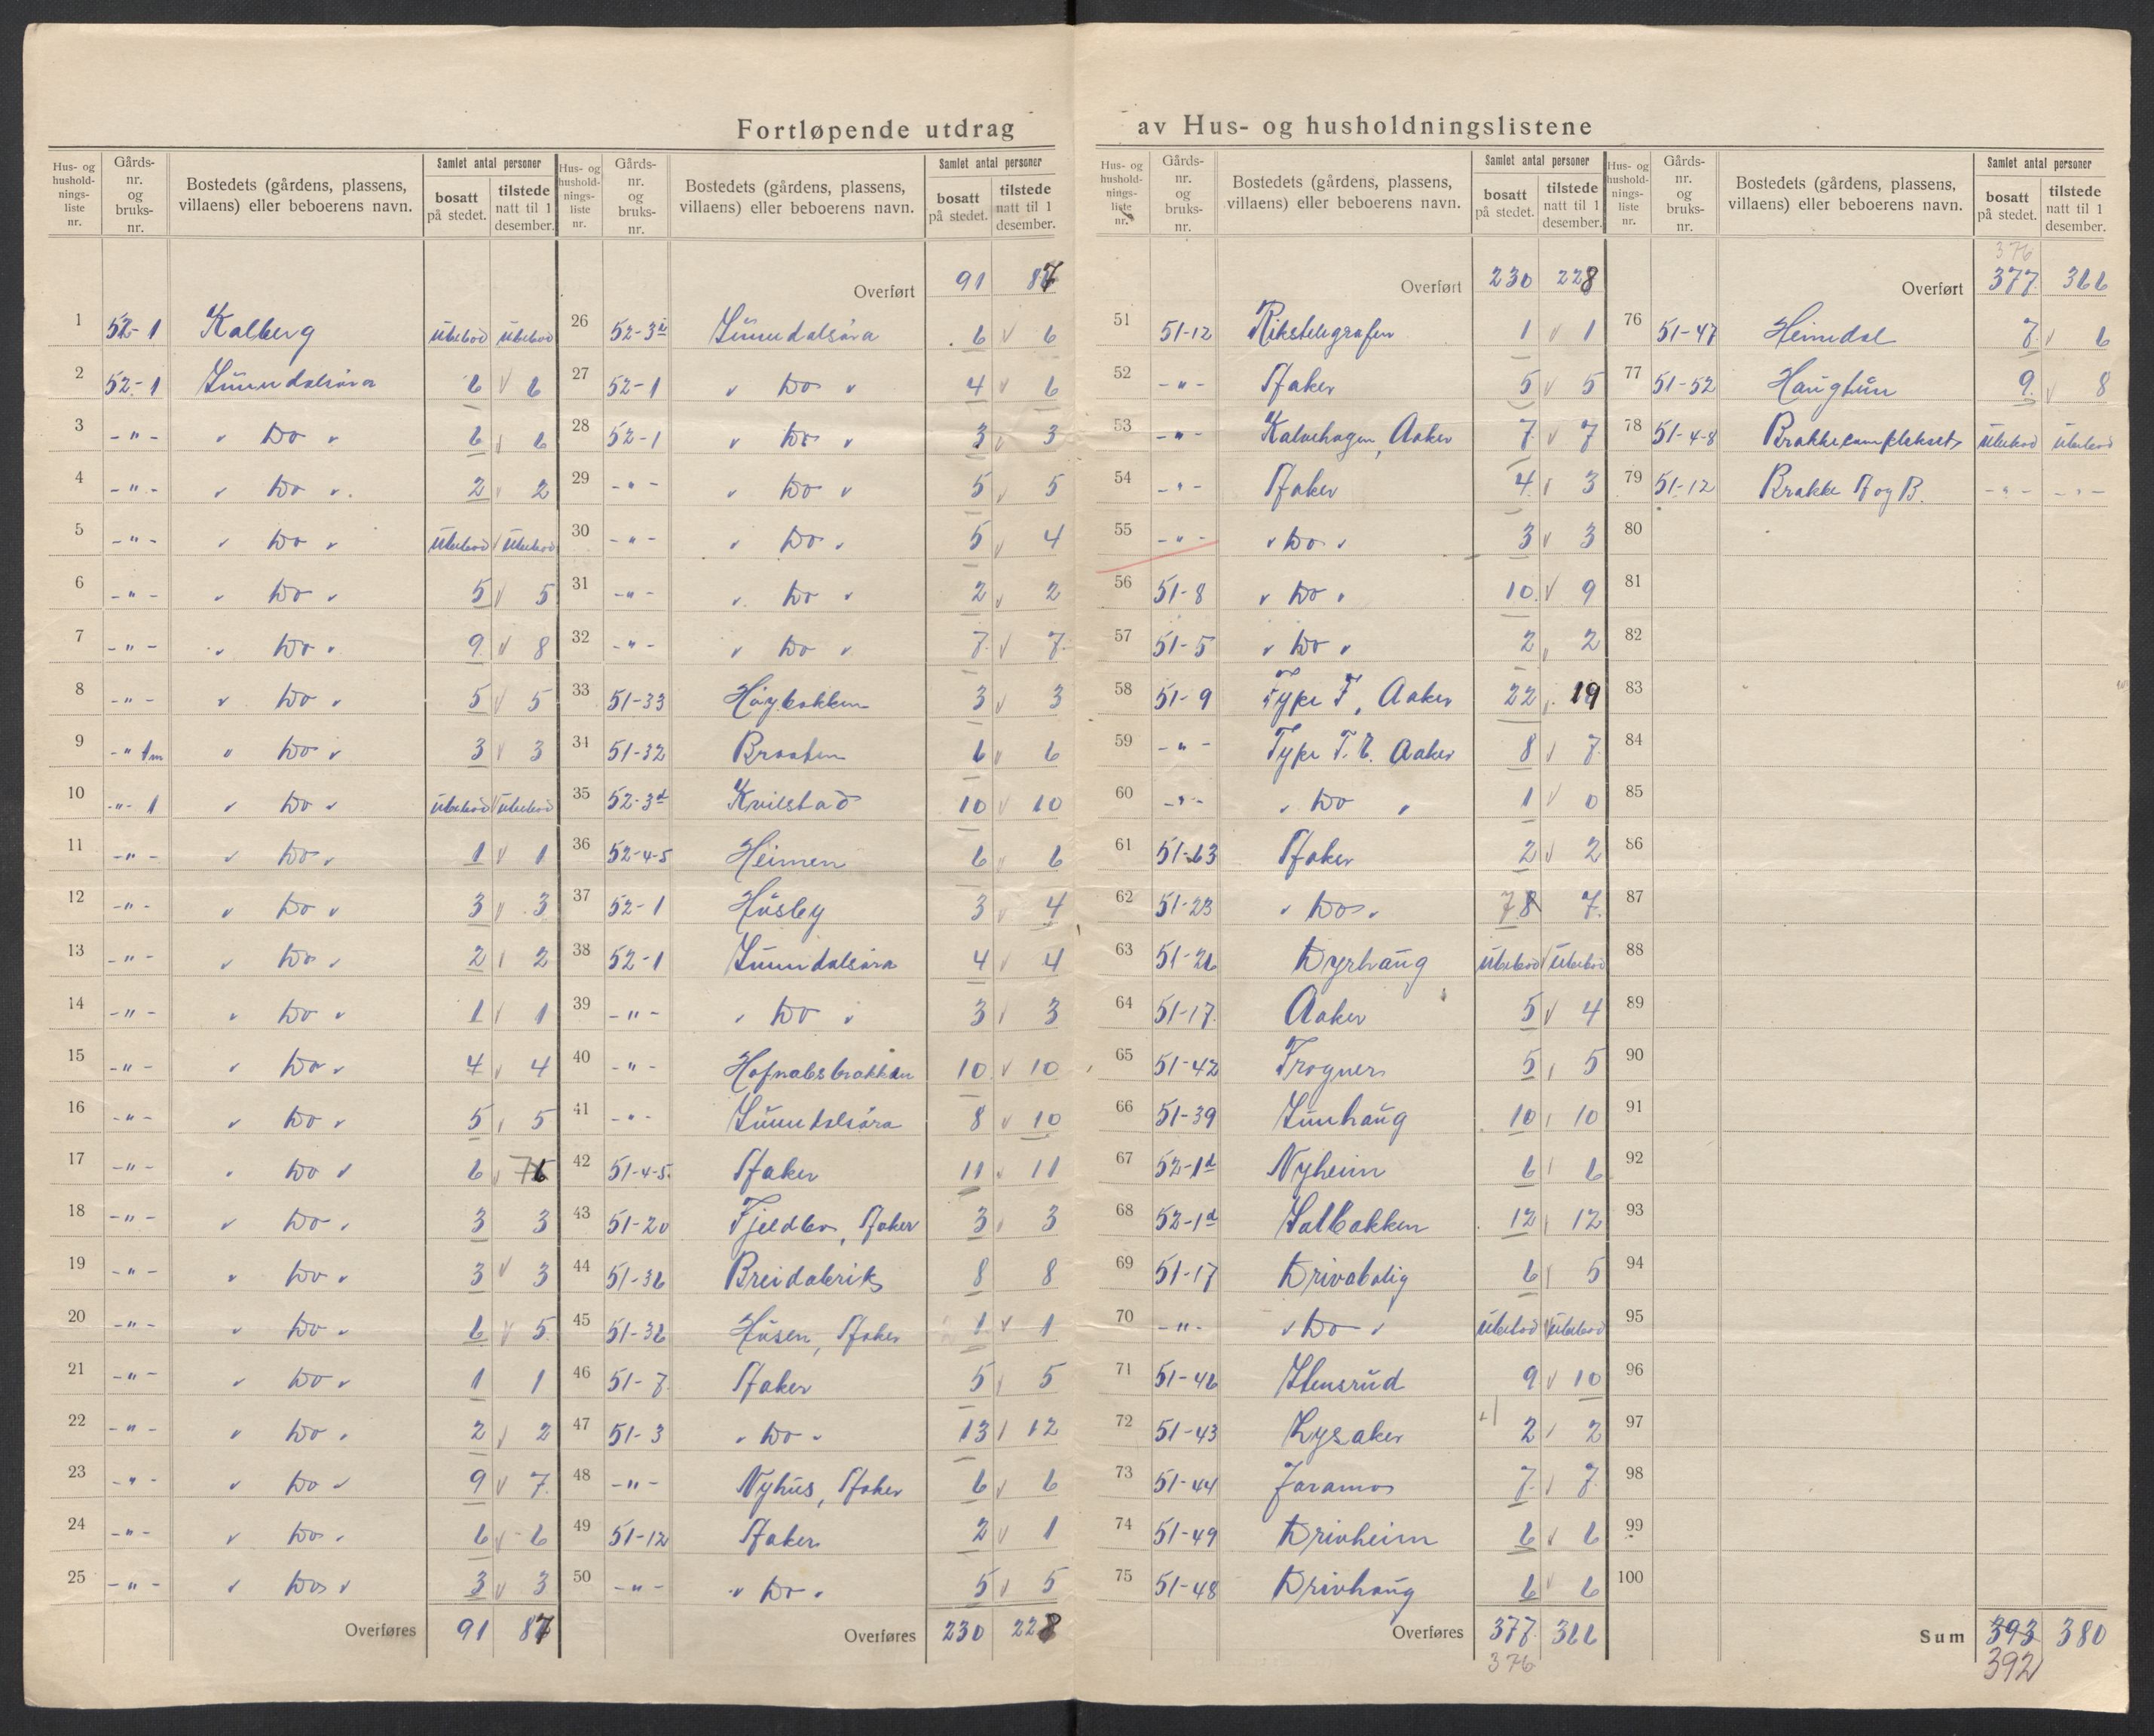 Fortløpende utdrag av Hus- og husholdningslistene
Hus- og hushold-nings-liste nr. | Gårds-nr. og bruks-nr. | Bostedets (gårdens, plassens, villaens) eller beboerens navn. | Samlet antal personer | bosatt på stedet. | tilstede natt til 1 desember.
1 52-1 Kalberg Ubebod Ubebod
2 52-1 Sunndalsøra 6 v 6
3 -"- " Do " 6 v 6
4 -"- " Do " 2 v 2
5 -"- " Do " Ubebod v Ubebod
6 -"- " Do " 5 v 5
7 -"- " Do " 9 v 8
8 -"- " Do " 5 v 5
9 -" 1m " Do " 3 v 3
10 -"- 1 " Do " Ubebod v Ubebod
11 -"- " Do " 1 v 1
12 -"- " Do " 3 v 3
13 -"- " Do " 2 v 2
14 -"- " Do " 1 v 1
15 -"- " Do " 4 v 4
16 -"- " Do " 5 v 5
17 -"- " Do " 6 v 76
18 -"- " Do " 3 3
19 -"- " Do " 3 v 3
20 -"- " Do " 6 v 5
21 -"- " Do " 1 1
22 -"- " Do " 2 v 2
23 -"- " Do " 9 v 7
24 -"- " Do " 6 v 6
25 -"- " Do " 3 v 3
Overføres 91 87
Hus- og hushold-nings-liste nr. | Gårds-nr. og bruks-nr. | Bostedets (gårdens, plassens, villaens) eller beboerens navn. | Samlet antal personer | bosatt på stedet. | tilstede natt til 1 desember.
Overført 91 87
26 52-3 Sunndalsøra 6 v 6
27 52-1 " Do " 4 v 6
28 52-1 " Do " 3 v 3
29 -"- " Do " 5 v 5
30 -"- " Do " 5 v 4
31 -"- " Do " 2 v 2
32 -"- " Do " 7 v 7
33 51-33 Høybakken 3 v 3
34 51-32 Braaten 6 v 6
35 52-3d Kvilstad 10 v 10
36 52-4-5 Heimen 6 v 6
37 52-1 Husby 3 v 4
38 52-1 Sunndalsøra 4 v 4
39 -"- " Do " 3 v 3
40 -"- Hofnabsbrakken 10 v 10
41 -"- Sunndalsøra 8 v 10
42 51-4-5 Aaker 11 v 11
43 51-20 Fjeldbo, Aaker 3 v 3
44 51-36 Breidablik 8 8
45 51-36 Husen, Aaker 1 v 1
46 51-7 Aaker 5 v 5
47 51-3 " Do " 13 v 12
48 -"- Nyhus, Aaker 6 v 6
49 51-12 Aaker 2 v 1
50 -"- " Do " 5 v 5
Overføres 230 228
Hus- og hushold-nings-liste nr. | Gårds-nr. og bruks-nr. | Bostedets (gårdens, plassens, villaens) eller beboerens navn. | Samlet antal personer | bosatt på stedet. | tilstede natt til 1 desember.
Overført 230 228
51 51-12 Rikstelegrafen 1 v 1
52 -"- Aaker 5 v 5
53 -"- Kalvehagen, Aaker 7 v 7
54 -"- Aaker 4 v 3
55 -"- " Do " 3 v 3
56 51-8 " Do " 10 v 9
57 51-5 " Do " 2 v 2
58 51-9 Type F, Aaker 22 v 19
59 -"- Type T. E. Aaker 8 v 7
60 -"- " Do " 1 v 0
61 51-63 Aaker 2 v 2
62 51-23 " Do " 78 7
63 51-26 Dyrhaug Ubebod v Ubebod
64 51-17 Aaker 5 v 4
65 51-42 Trogner 5 v 5
66 51-39 Sunhaug 10 v 10
67 52-1d Nyheim 6 v 6
68 52-1d Solbakken 12 v 12
69 51-17 Drivabolig 6 v 5
70 -"- " Do " Ubebod v Ubebod
71 51-46 Stensrud 9 v 10
72 51-43 Lysaker +1 2 v 2
73 51-44 Jaramo 7 v 7
74 51-49 Drivheim 6 v 6
75 51-48 Drivhaug 6 v 6
Overføres 377 366
376
Hus- og hushold-nings-liste nr. | Gårds-nr. og bruks-nr. | Bostedets (gårdens, plassens, villaens) eller beboerens navn. | Samlet antal personer | bosatt på stedet. | tilstede natt til 1 desember.
376
Overført 377 366
76 51-47 Heimdal 7 v 6
77 51-52 Haugtun 9 v 8
78 51-4-8 Brakkecomplekset Ubebod Ubebod
79 51-12 Brakke A og B. -"- -"-
80
81
82
83
84
85
86
87
88
89
90
91
92
93
94
95
96
97
98
99
100
Sum 393 380
392